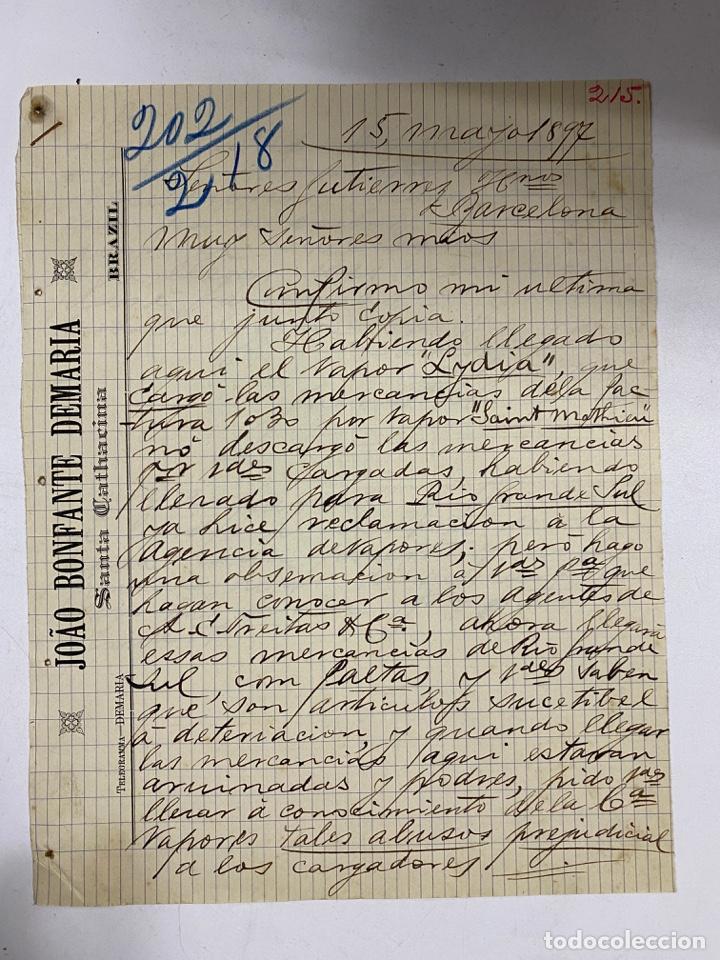 215.
202
2/18
15, mayo 1897
Señores Gutierres Hnos
Barcelona
Muy Señores mios
Confirmo mi ultima
que junto Copia.
Habiendo llegado
aqui el vapor "Lydia", que
Cargó las mercancias de la fac-
tura 1030 por vapor "Saint Mathieu"
nó descargó las mercancias
por Vdes Cargadas, habiendo
llevado para Rio Grande Sul
ya hice reclamacion á la
Agencia de Vapores; peró hago
una observacion á Vdes pa que
hagan conocer a los agentes de
A. C. Freitas & Ca, ahora llegará
essas mercancias de Rio Grande
Sul, com faltas, y Vdes saben
que son articulos sucetibel
á deteriacion, y quando llegar
las mercancias aqui estaran
arruinadas y podres, pido Vdes
llevar á conocimiento de la Ca
Vapores tales abusos prejudicial
a los cargadores
JOÃO BONFANTE DEMARIA
Santa Catharina
BRAZIL
TELEGRAMMA DEMARIA
todocoleccion
todocoleccion.net